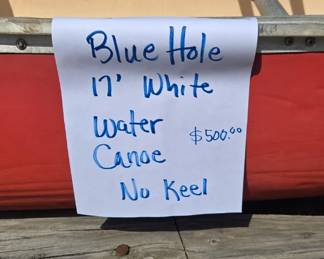 Blue Hole
17' White
Water
$500.00
Canoe
No Keel